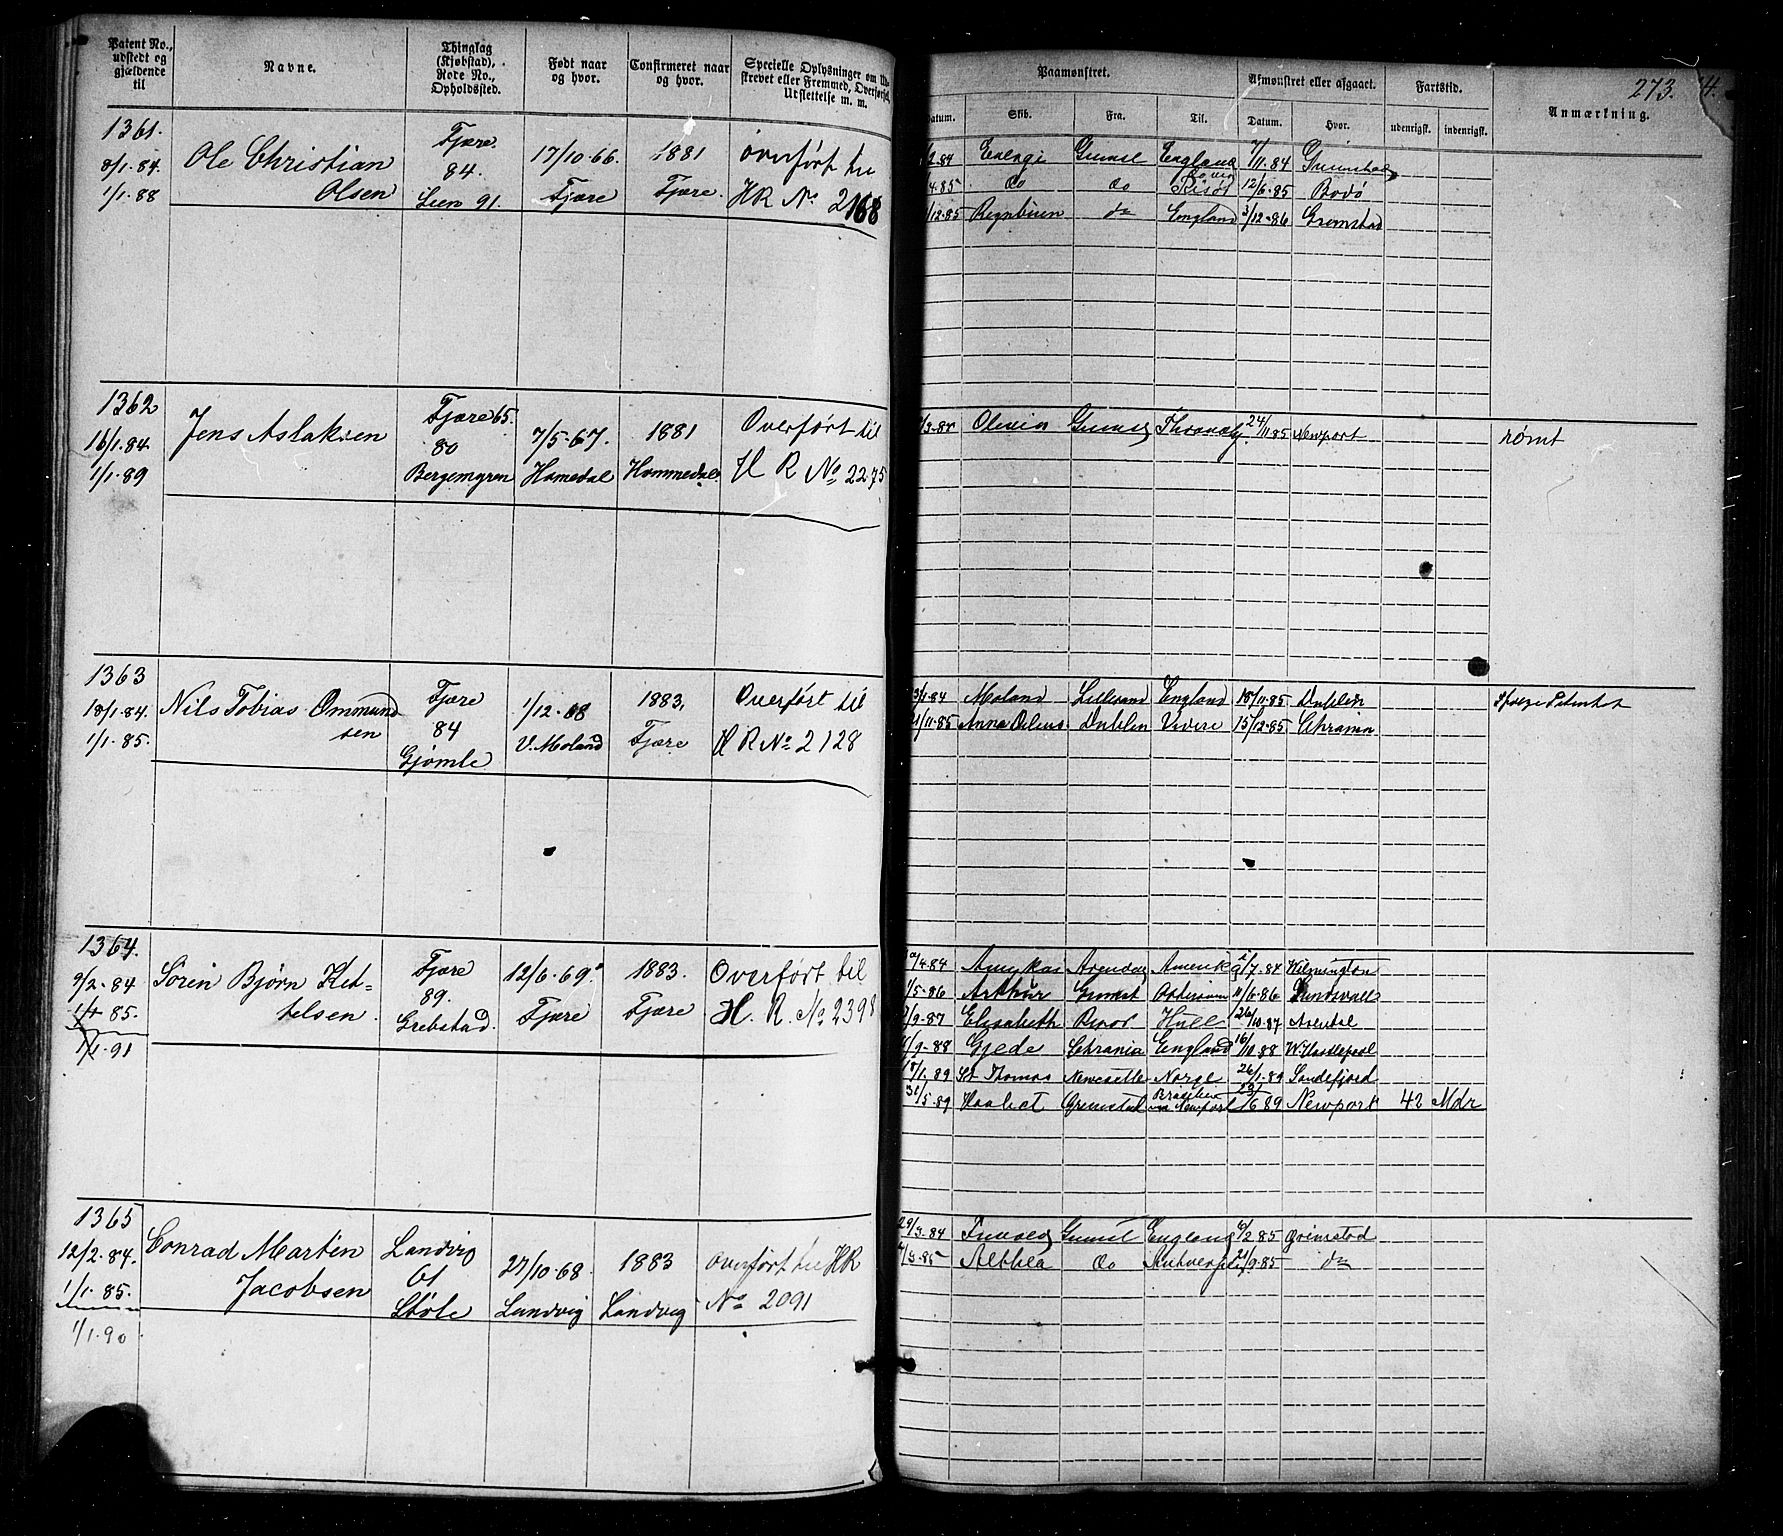 Patent No., udstedt og gjældende til
Navne.
Thinglag (Kjøbstad), Rode No., Opholdssted.
Født naar og hvor.
Confirmeret naar og hvor.
Specielle Oplysninger om
strevet eller Fremmed, Overførsel,
Udslettelse m. m.
1361.
8/1.84.
1/1.88
Ole Christian
Olsen
Fjære
84.
Lien 91.
17/10.66.
Fjære
1881
Fjære.
overført til
HR No 2168
1362
16/1.84.
1/1.89
Jens Aslaksen
Fjære 65.
80
Bergemyren
7/5.67.
Homedal
1881
Hommedal.
Overført til
H R No 2275
1363
18/1.84.
1/1.85.
Nils Tobias Ommund
sen
Fjære
84
Gjømle
1/12.68
V. Moland
1883,
Fjære
Overført til
H R No 2128
1364.
9/2.84
1/1 85.
1/1.91
Sören Bjørn Ket=
telsen.
Fjære
89.
Grebstad.
12/6.69.
Fjære
1883.
Fjære
Overført til
H. R. No 2398
1365
12/2.84.
1/1.85.
1/1.90
Conrad Martin
Jacobsen
Landvig
61
Støle
27/10.68.
Landvig
1883
Landvig
overført til HR
No 2091
Paamønstret.
Afmønstret eller afgaaet.
Fartstid.
273.
Datum.
Skib.
Fra.
Til.
Datum.
Hvor.
udenrigsk.
indenrigsk.
Anmærkning.
2 84 Grimst England 7/11.84 Grimstad
4.85 do do 12/6.85 Bodö
/12.85 Regnbuen do England 3/12.86 Grimstad
/3.84 Olivia Grimst 24/11 85 Newport
rømt
3/1.84 Moland Lillesand England 18/11.85 Dublin
21/11.85 Dublin Vivere 15/12.85 Chrania
/4.84 Arendal Amerika 2/7.84 Wilmington
/5.86 Arthur Grimst 11/6.86 Sundsvall
/9.87 Elisabeth Risør Hull 26/10.87 Arendal
/9.88 Gjede Chrania England 16/10 88 W. Hartlepool
18/1.89 St Thomas Newcastle Norge 26/1.89 Sandefjord
31/5.89 Haabet Grimstad Brasilien
via Newport 23/6 89 Newport 42 Mdr
29/3.84 Grimst England 6/2 85 Grimstad
7/3.85 Althea do Antwerp 21/9.85 do